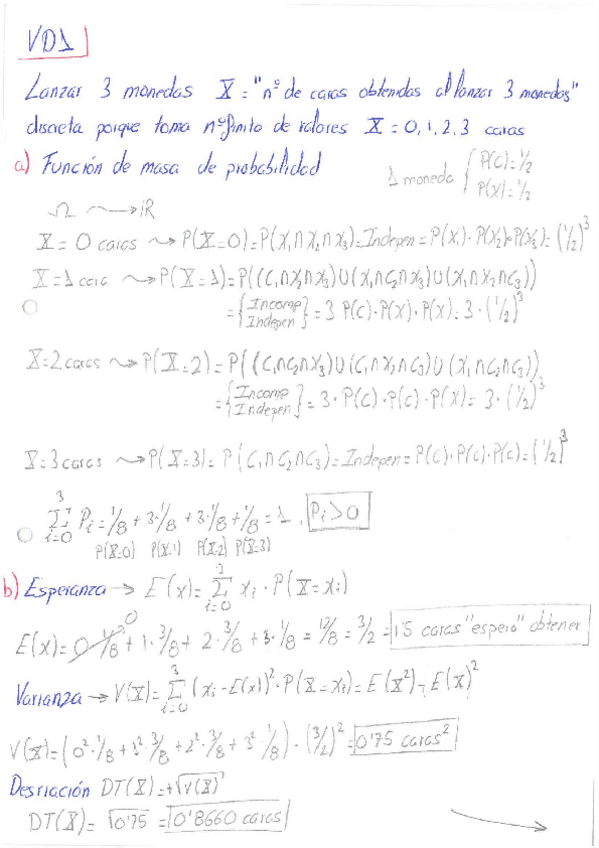 VD1
Lanzar 3 monedas X = "nº de caras obtenidas al lanzar 3 monedas"
discreta porque toma nº finito de valores X = 0, 1, 2, 3 caras
a) Función de masa de probabilidad
1 moneda { P(C) = 1/2
P(X) = 1/2
Ω ⟿ IR
X = 0 caras ⟿ P(X=0) = P(X₁∩X₂∩X₃) = Indepen = P(X₁)·P(X₂)·P(X₃) = (1/2)³
X = 1 cara ⟿ P(X=1) = P((C₁∩X₂∩X₃)∪(X₁∩C₂∩X₃)∪(X₁∩X₂∩C₃))
= {Incomp Indepen} = 3 P(C)·P(X)·P(X) = 3·(1/2)³
X=2 caras ⟿ P(X=2) = P((C₁∩C₂∩X₃)∪(C₁∩X₂∩C₃)∪(X₁∩C₂∩C₃))
= {Incomp Indepen} = 3·P(C)·P(C)·P(X) = 3·(1/2)³
X=3 caras ⟿ P(X=3) = P(C₁∩C₂∩C₃) = Indepen = P(C)·P(C)·P(C) = (1/2)³
3
Σ Pi = 1/8 + 3·1/8 + 3·1/8 + 1/8 = 1, Pi > 0
i=0
P(X=0) P(X=1) P(X=2) P(X=3)
b) Esperanza → E(x) = Σ³ᵢ₌₀ xi · P(X=xi)
E(x) = 0·1/8 0 + 1·3/8 + 2·3/8 + 3·1/8 = 12/8 = 3/2 = 1'5 caras "espero" obtener
Varianza → V(X) = Σ³ᵢ₌₀ (xi - E(x))² · P(X=xi) = E(X²) - E(x)²
V(X) = (0²·1/8 + 1²·3/8 + 2²·3/8 + 3²·1/8) - (3/2)² = 0'75 caras²
Desviación DT(X) = +√V(X)
DT(X) = √0'75 = 0'8660 caras